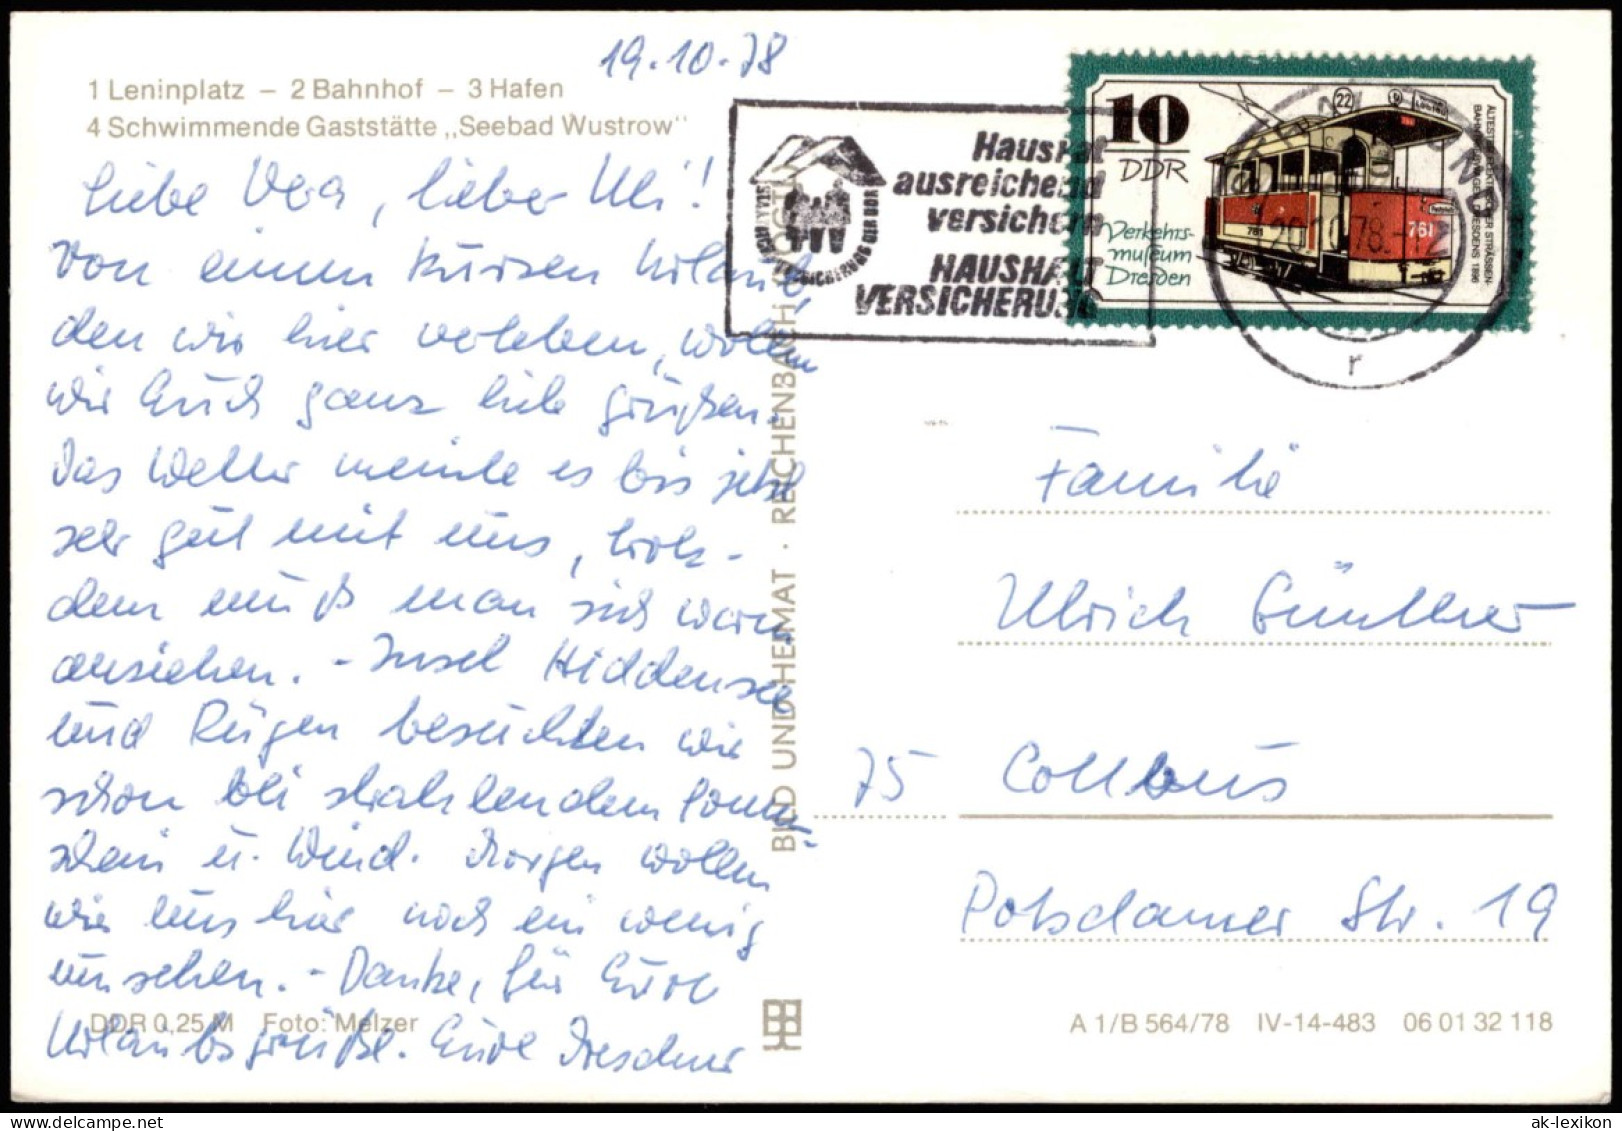 19.10.78
1 Leninplatz – 2 Bahnhof – 3 Hafen
4 Schwimmende Gaststätte „Seebad Wustrow"
Liebe Vera, lieber Uli!
Von einem kurzen Urlaub,
den wir hier verleben, wollen
wir Euch ganz liebe grüßen.
Das Wetter meinte es bis jetzt
sehr gut mit uns, trotz-
dem muß man sich warm
anziehen. – Insel Hiddensee
und Rügen besuchten wir
schon bei strahlendem Sonnen-
schein u. Wind. Morgen wollen
wir uns hier noch ein wenig
umsehen. – Danke, für Eure
Urlaubsgrüße. Eure Dresdner
DDR 0,25 M Foto: Melzer
BILD UND HEIMAT · REICHENBACH i.
STAATLICHE VERSICHERUNG DER DDR
Haushalt
ausreichend
versichern
HAUSHALT
VERSICHERUNG
10
DDR
Verkehrs-
museum
Dresden
22
781
761
ÄLTESTER
STRASSEN-
DRESDENS 1896
STRALSUND
20.10.78.-12
r
Familie
Ulrich Günther
75 Cottbus
Potsdamer Str. 19
A 1/B 564/78 IV-14-483 06 01 32 118
ak-lexikon